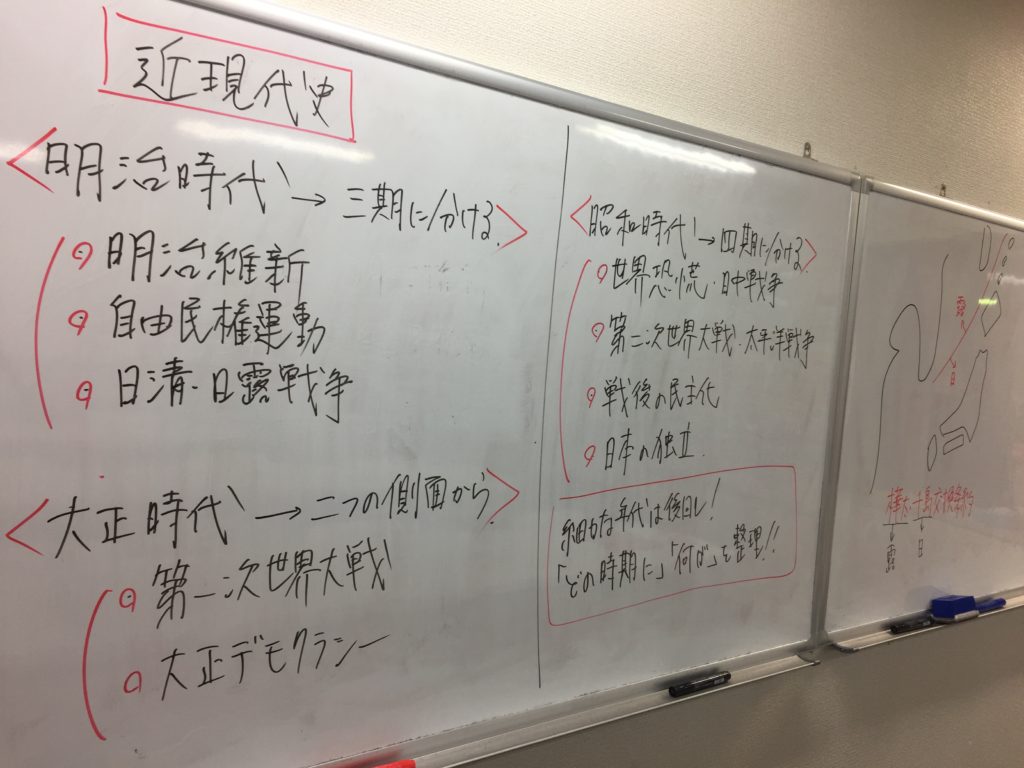 近現代史
<明治時代→三期に分ける>
明治維新
自由民権運動
日清・日露戦争
<大正時代→二つの側面から>
第一次世界大戦
大正デモクラシー
<昭和時代→四期に分ける>
世界恐慌・日中戦争
第二次世界大戦・太平洋戦争
戦後の民主化
日本の独立
細かな年代は後回し!
「どの時期に」「何が」を整理!!
露
日
樺太・千島交換条約
露
日